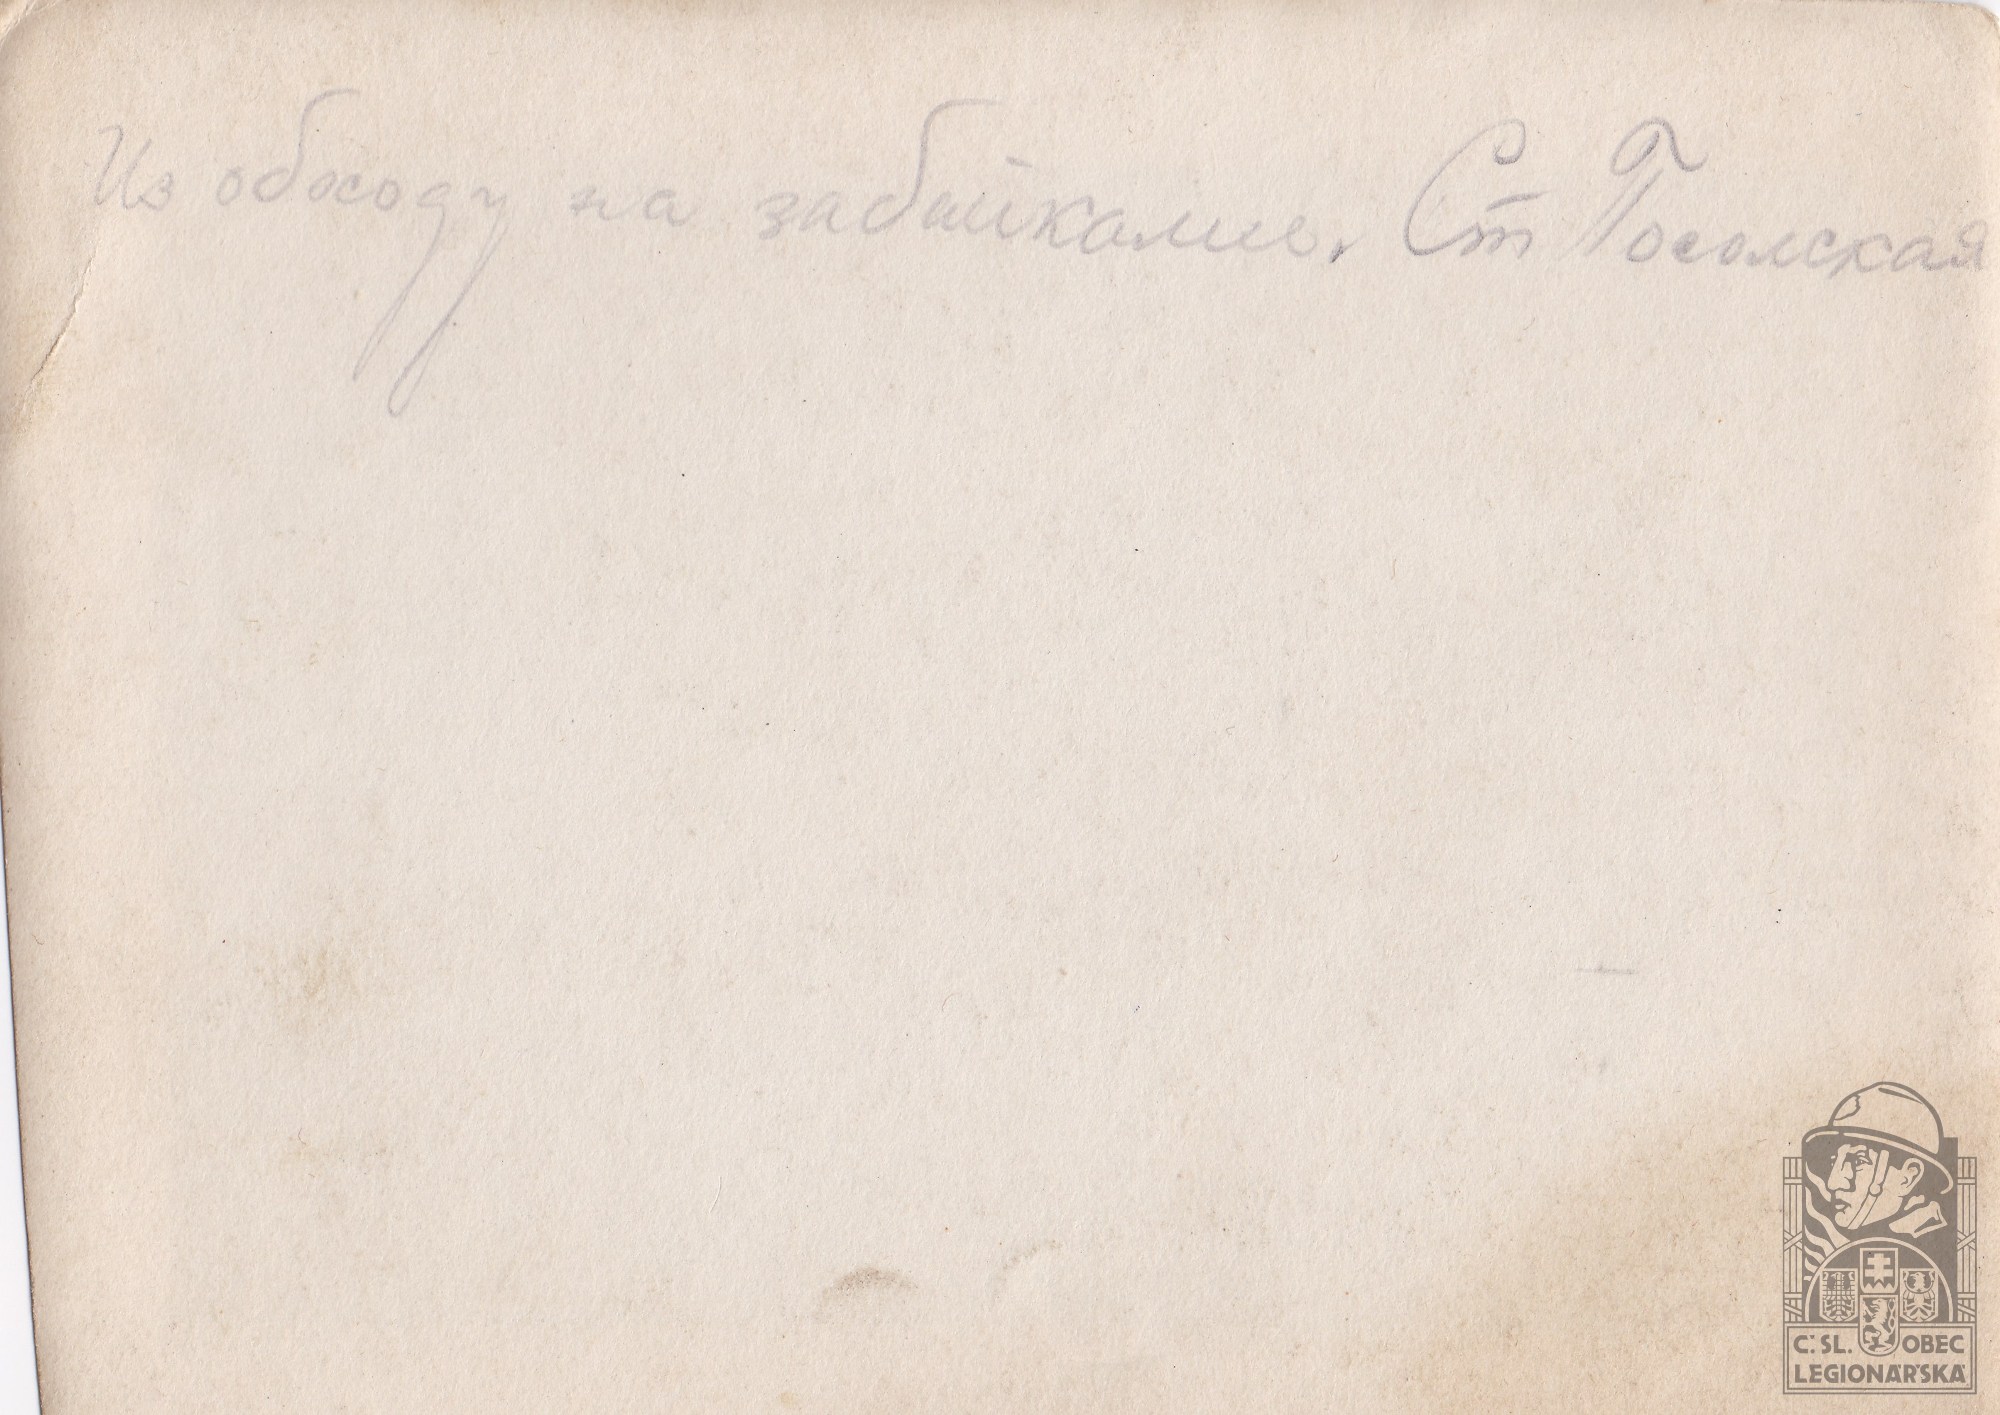 Из обходу на забайкалие. Ст Посолская
Č. SL. OBEC
LEGIONÁŘSKÁ